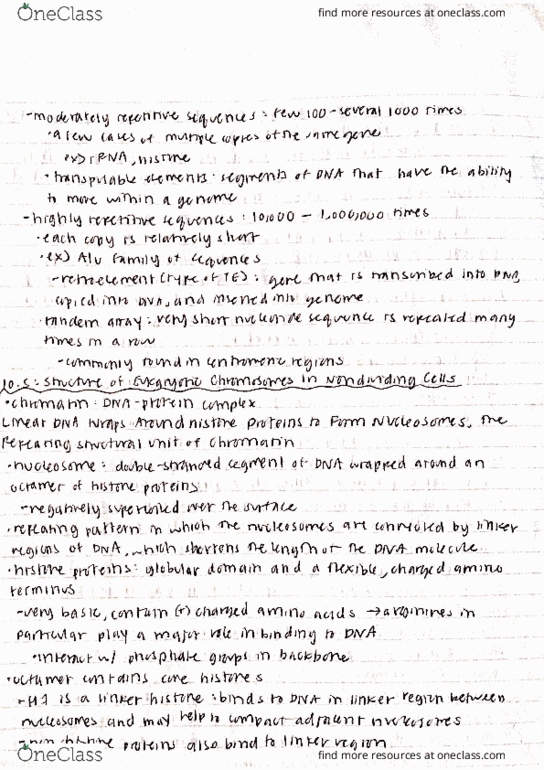 OneClass
find more resources at oneclass.com
-moderately repetitive sequences: few 100-several 1000 times
•a few cases of multiple copies of the same gene
ex) rRNA, histone
•transposable elements: segments of DNA that have the ability
to move within a genome
-highly repetitive sequences: 10,000 - 1,000,000 times
•each copy is relatively short
•ex) Alu family of sequences
-retroelement (type of TE): gene that is transcribed into RNA,
copied into DNA, and inserted into genome
•tandem array: very short nucleotide sequence is repeated many
times in a row
-commonly found in centromeric regions
10.5: Structure of Eukaryotic Chromosomes in Nondividing Cells
•chromatin: DNA-protein complex
Linear DNA wraps Around histone Proteins to Form Nucleosomes, the
Repeating structural unit of chromatin
•nucleosome: double-stranded segment of DNA wrapped around an
octamer of histone proteins
-negatively supercoiled over the surface
•repeating pattern in which the nucleosomes are connected by linker
regions of DNA, which shortens the length of the DNA molecule
•histone proteins: globular domain and a flexible, charged amino
terminus
-very basic, contain (+) charged amino acids → arginines in
particular play a major role in binding to DNA
•interact w/ phosphate groups in backbone
•octamer contains core histones
-H1 is a linker histone: binds to DNA in linker region between
nucleosomes and may help to compact adjacent nucleosomes
-non histone proteins also bind to linker region
OneClass
find more resources at oneclass.com